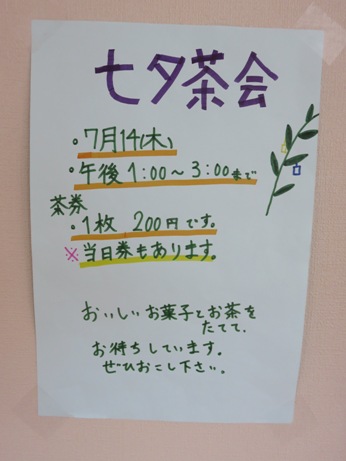 七夕茶会
・7月14(木)
・午後1:00〜3:00まで
茶券
・1枚 200円です。
※当日券もあります。
おいしいお菓子とお茶を
たてて、
お待ちしています。
ぜひおこし下さい。